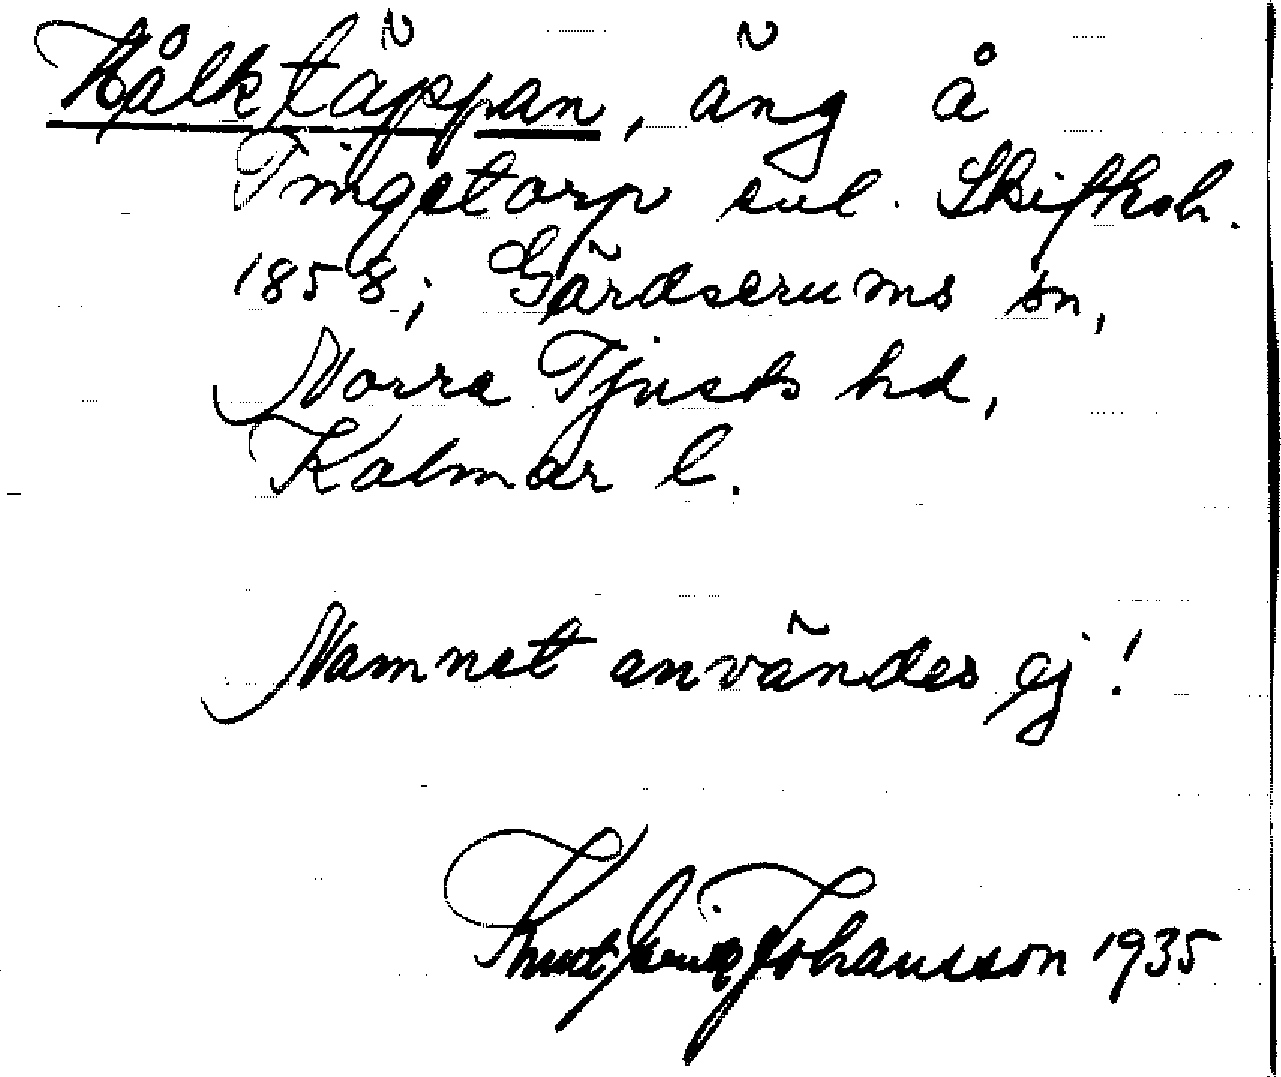 Kålktäppan, äng å
Tingstorp enl. Skifksh.
1858; Gärdserums sn,
Norra Tjusts hd,
Kalmar l.
Namnet användes ej!
Knut Johansson 1935